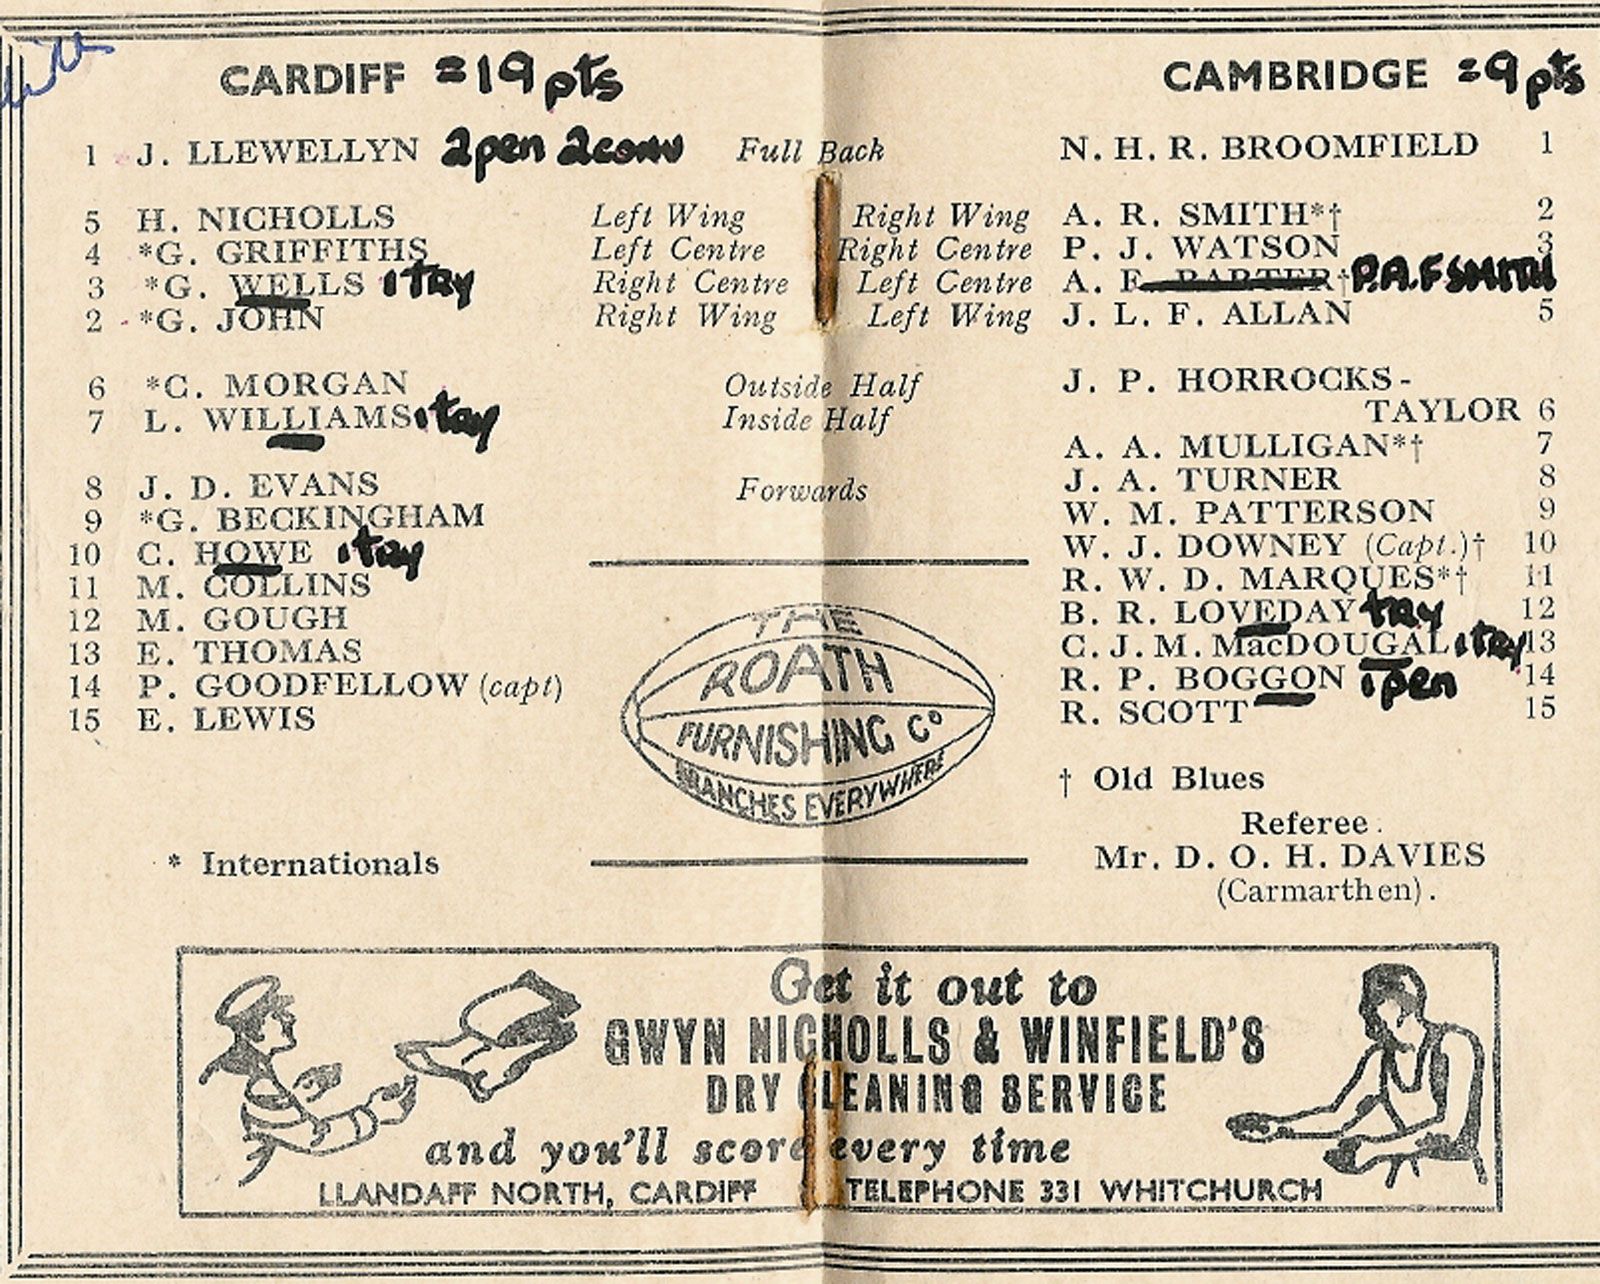 CARDIFF = 19 pts CAMBRIDGE = 9 pts
1 J. LLEWELLYN 2pen 2conv Full Back N. H. R. BROOMFIELD 1
5 H. NICHOLLS Left Wing Right Wing A. R. SMITH*† 2
4 *G. GRIFFITHS Left Centre Right Centre P. J. WATSON 3
3 *G. WELLS 1 try Right Centre Left Centre A. F. † P.A.F SMITH
2 *G. JOHN Right Wing Left Wing J. L. F. ALLAN 5
6 *C. MORGAN Outside Half J. P. HORROCKS-
TAYLOR 6
7 L. WILLIAMS 1 try Inside Half
A. A. MULLIGAN*† 7
8 J. D. EVANS Forwards J. A. TURNER 8
9 *G. BECKINGHAM W. M. PATTERSON 9
10 C. HOWE 1 try W. J. DOWNEY (Capt.)† 10
11 M. COLLINS R. W. D. MARQUES*† 11
12 M. GOUGH B. R. LOVEDAY try 12
13 E. THOMAS C. J. M. MacDOUGAL 1 try 13
14 P. GOODFELLOW (capt) R. P. BOGGON 1pen 14
15 E. LEWIS R. SCOTT 15
THE
ROATH
FURNISHING Co
BRANCHES EVERYWHERE
† Old Blues
Referee.
* Internationals Mr. D. O. H. DAVIES
(Carmarthen).
Get it out to
GWYN NICHOLLS & WINFIELD'S
DRY CLEANING SERVICE
and you'll score every time
LLANDAFF NORTH, CARDIFF TELEPHONE 331 WHITCHURCH